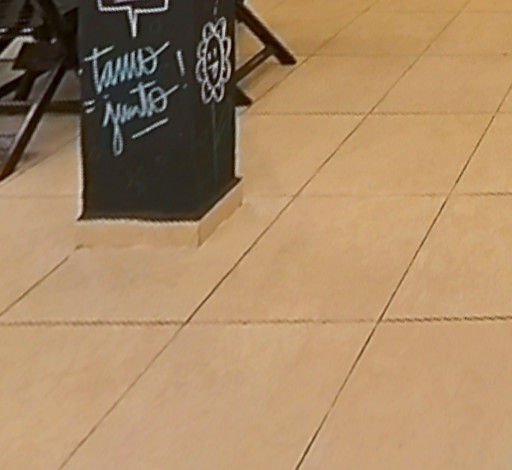 tamo
junto!